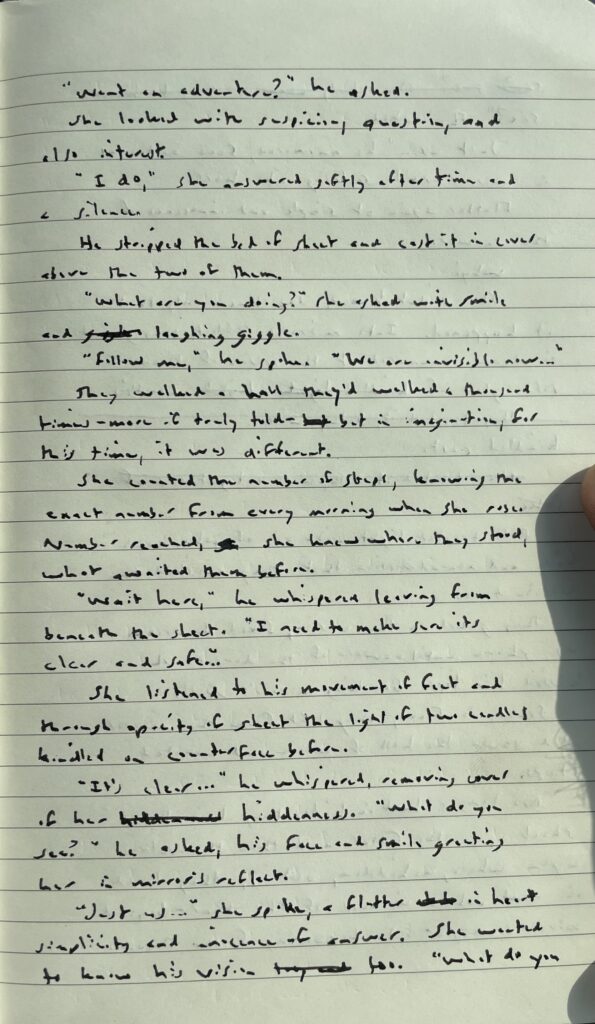 "Want an adventure?" he asked.
She looked with suspicion, question, and
also interest.
"I do," she answered softly after time and
a silence.
He stripped the bed of sheet and cast it in cover
above the two of them.
"What are you doing?" she asked with smile
and laughing giggle.
"Follow me," he spoke. "We are invisible now..."
They walked a hall they'd walked a thousand
times - more if truly told - but in imagination, for
this time, it was different.
She counted the number of steps, knowing the
exact number from every morning when she rose.
Number reached, she knew where they stood,
what awaited them before.
"Wait here," he whispered leaving from
beneath the sheet. "I need to make sure its
clear and safe..."
She listened to his movement of feet and
through opacity of sheet the light of two candles
kindled on counterface before.
"It's clear..." he whispered, removing cover
of her hiddenness. "What do you
see?" he asked, his face and smile greeting
her in mirror's reflect.
"Just us..." she spoke, a flutter in heart
simplicity and innocence of answer. She wanted
to know his vision too. "What do you